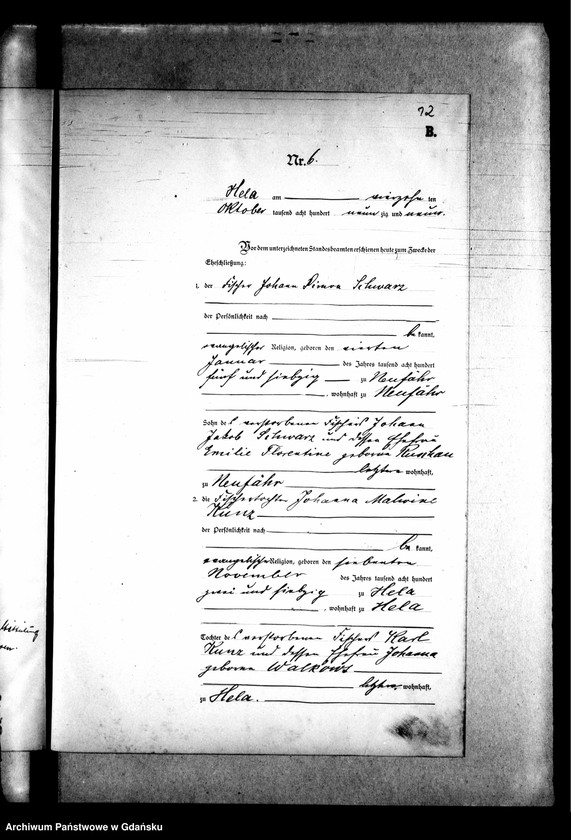 12
B.
Nr. 6.
Hela am vierzehn ten
Oktober tausend acht hundert neun zig und neun.
Vor dem unterzeichneten Standesbeamten erschienen heute zum Zwecke der
Eheschließung:
1. der Fischer Johann Schwarz
der Persönlichkeit nach
be kannt,
evangelischer Religion, geboren den vierten
Januar des Jahres tausend acht hundert
fünf und siebzig zu Neufähr
, wohnhaft zu Neufähr
Sohn des verstorbenen Fischers Johann
Jakob Schwarz und dessen Ehefrau
Emilie Florentine geborene
letztere wohnhaft,
zu Neufähr
2. die Fischertochter Johanna Malwine
Kunz
der Persönlichkeit nach
be kannt,
evangelischer Religion, geboren den siebenten
November des Jahres tausend acht hundert
zwei und siebzig zu Hela
, wohnhaft zu Hela
Tochter des verstorbenen Fischers Karl
Kunz und dessen Ehefrau Johanna
geborene Walkows
letztere wohnhaft,
zu Hela.
Archiwum Państwowe w Gdańsku